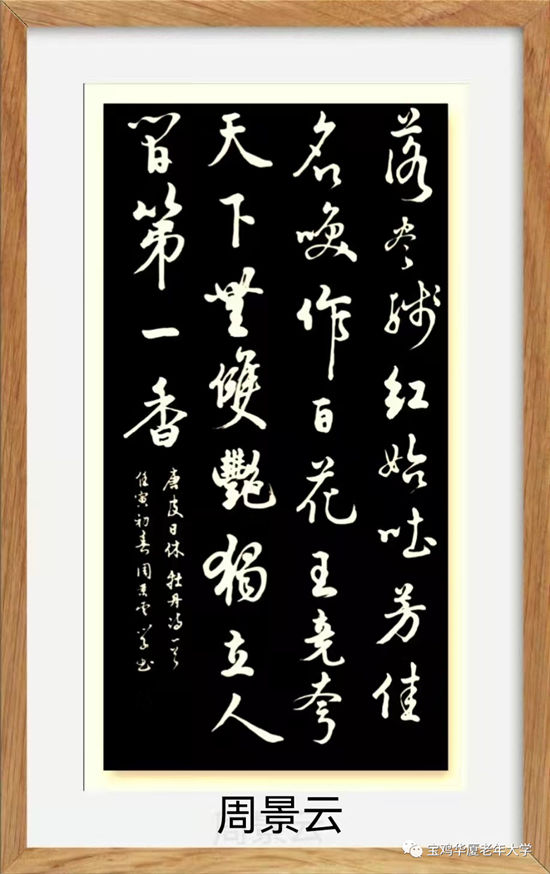 落尽残红始吐芳佳
名唤作百花王竞夸
天下無雙艷獨立人
间第一香
唐皮日休牡丹诗一首
壬寅初春周景云学书
周景云
宝鸡华厦老年大学